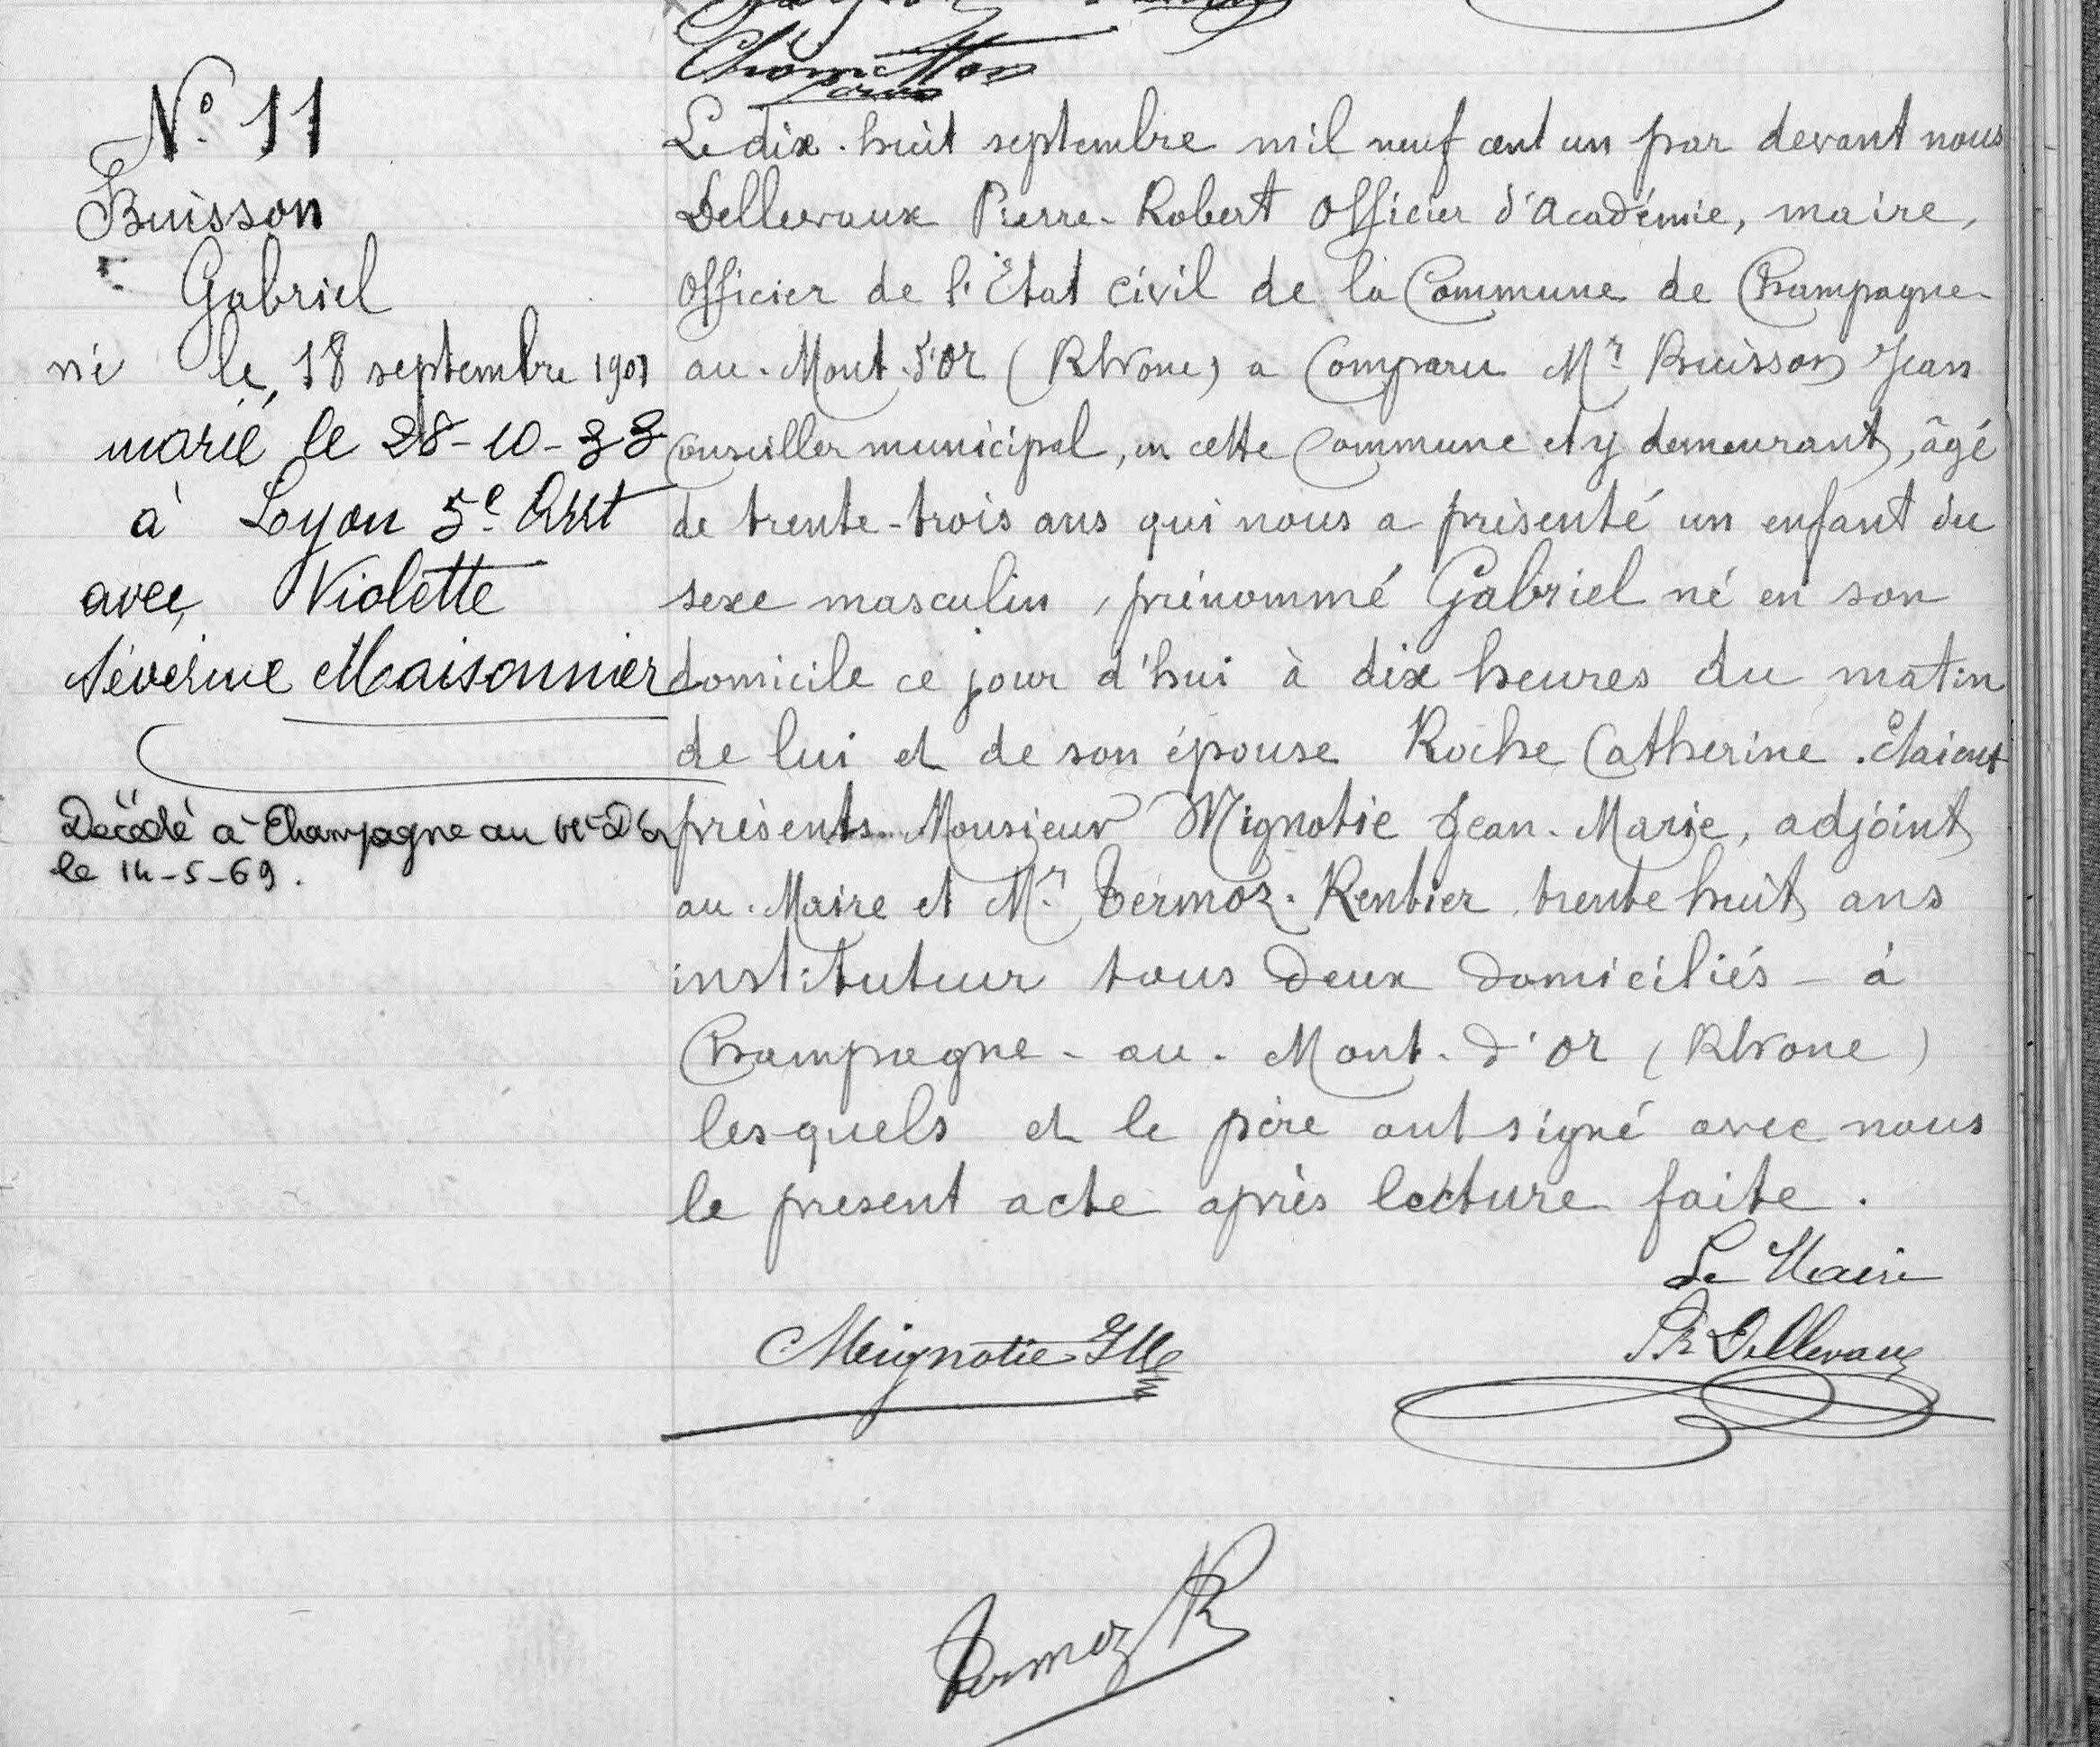 N° 11
Buisson
Gabriel
né le 18 septembre 1901
marié le 28-10-33
à Lyon 5e Arrt
avec Violette
Séverine Maisonnier
Décédé à Champagne au Mt D'Or
le 14-5-69.
Le dix-huit septembre mil neuf cent un par devant nous
Dellevaux Pierre-Robert Officier d'Académie, maire,
Officier de l'Etat civil de la Commune de Champagne-
au-Mont-d'Or (Rhône) a Comparu Mr Buisson Jean
Conseiller municipal, en cette Commune et y demeurant, âgé
de trente-trois ans qui nous a présenté un enfant du
sexe masculin, prénommé Gabriel né en son
domicile ce jour d'hui à dix heures du matin
de lui et de son épouse Roche Catherine. Etaient
présents Monsieur Mignotie Jean-Marie, adjoint
au-Maire et Mr Termoz-Rentier trente huit ans
instituteur tous deux domiciliés - à
Champagne-au-Mont-d'Or (Rhône)
lesquels et le père ont signé avec nous
le present acte après lecture faite.
Le Maire
Mignotie JM
PR Dellevaux
Termoz R